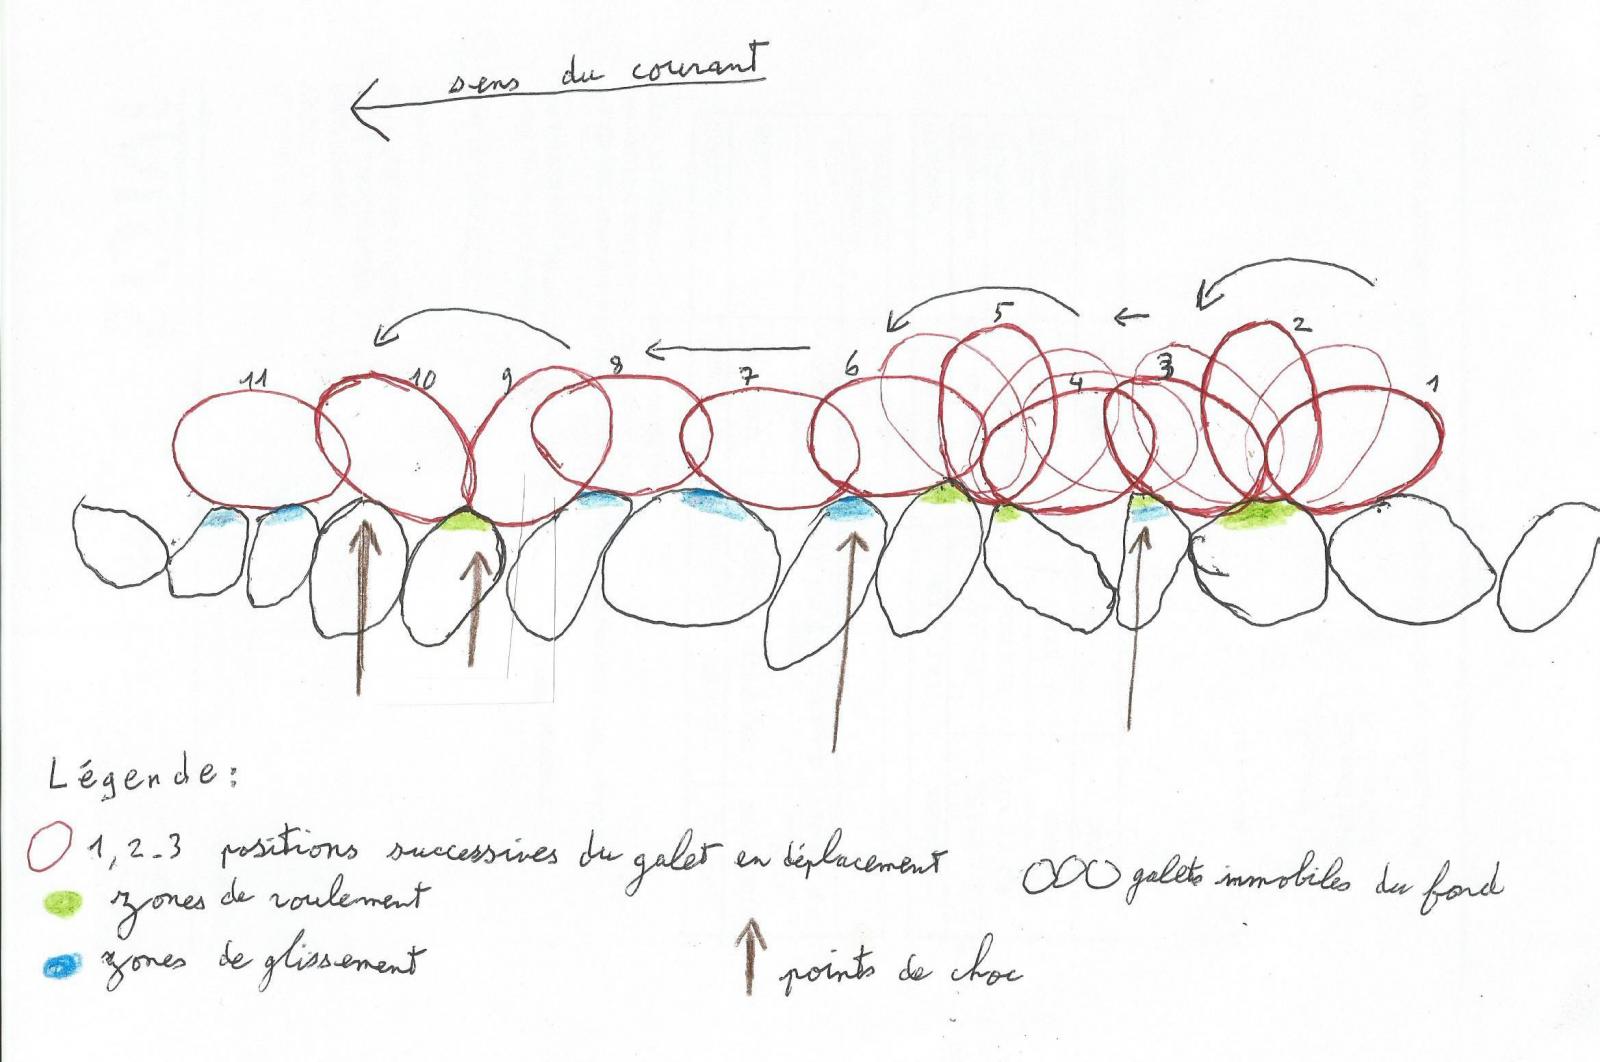 sens du courant
11 10 9 8 7 6 5 4 3 2 1
Légende:
1, 2-3 positions successives du galet en déplacement
zones de roulement
zones de glissement
galets immobiles du fond
points de choc